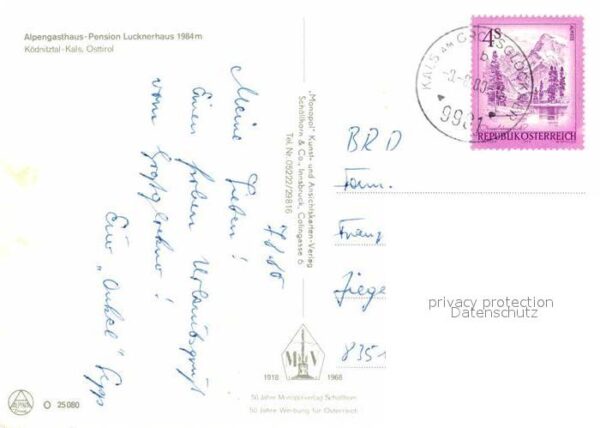 Alpengasthaus-Pension Lucknerhaus 1984 m
Ködnitztal-Kals, Osttirol
7.8.80
Meine Lieben!
Einen frohen Urlaubsgruß
vom Großglockner!
Euer „Onkel" Sepp
„Monopol" Kunst- und Ansichtskarten-Verlag
Schöllhorn & Co., Innsbruck, Colingasse 6
Tel. Nr. 05222/29816
KALS AM GROSSGLOCKNER
b
9981
4S
REPUBLIK ÖSTERREICH
BRD
Fam.
Franz
Ziege
835
privacy protection
Datenschutz
MV
1918 1968
50 Jahre Monopolverlag Schöllhorn
50 Jahre Werbung für Österreich
O 25080